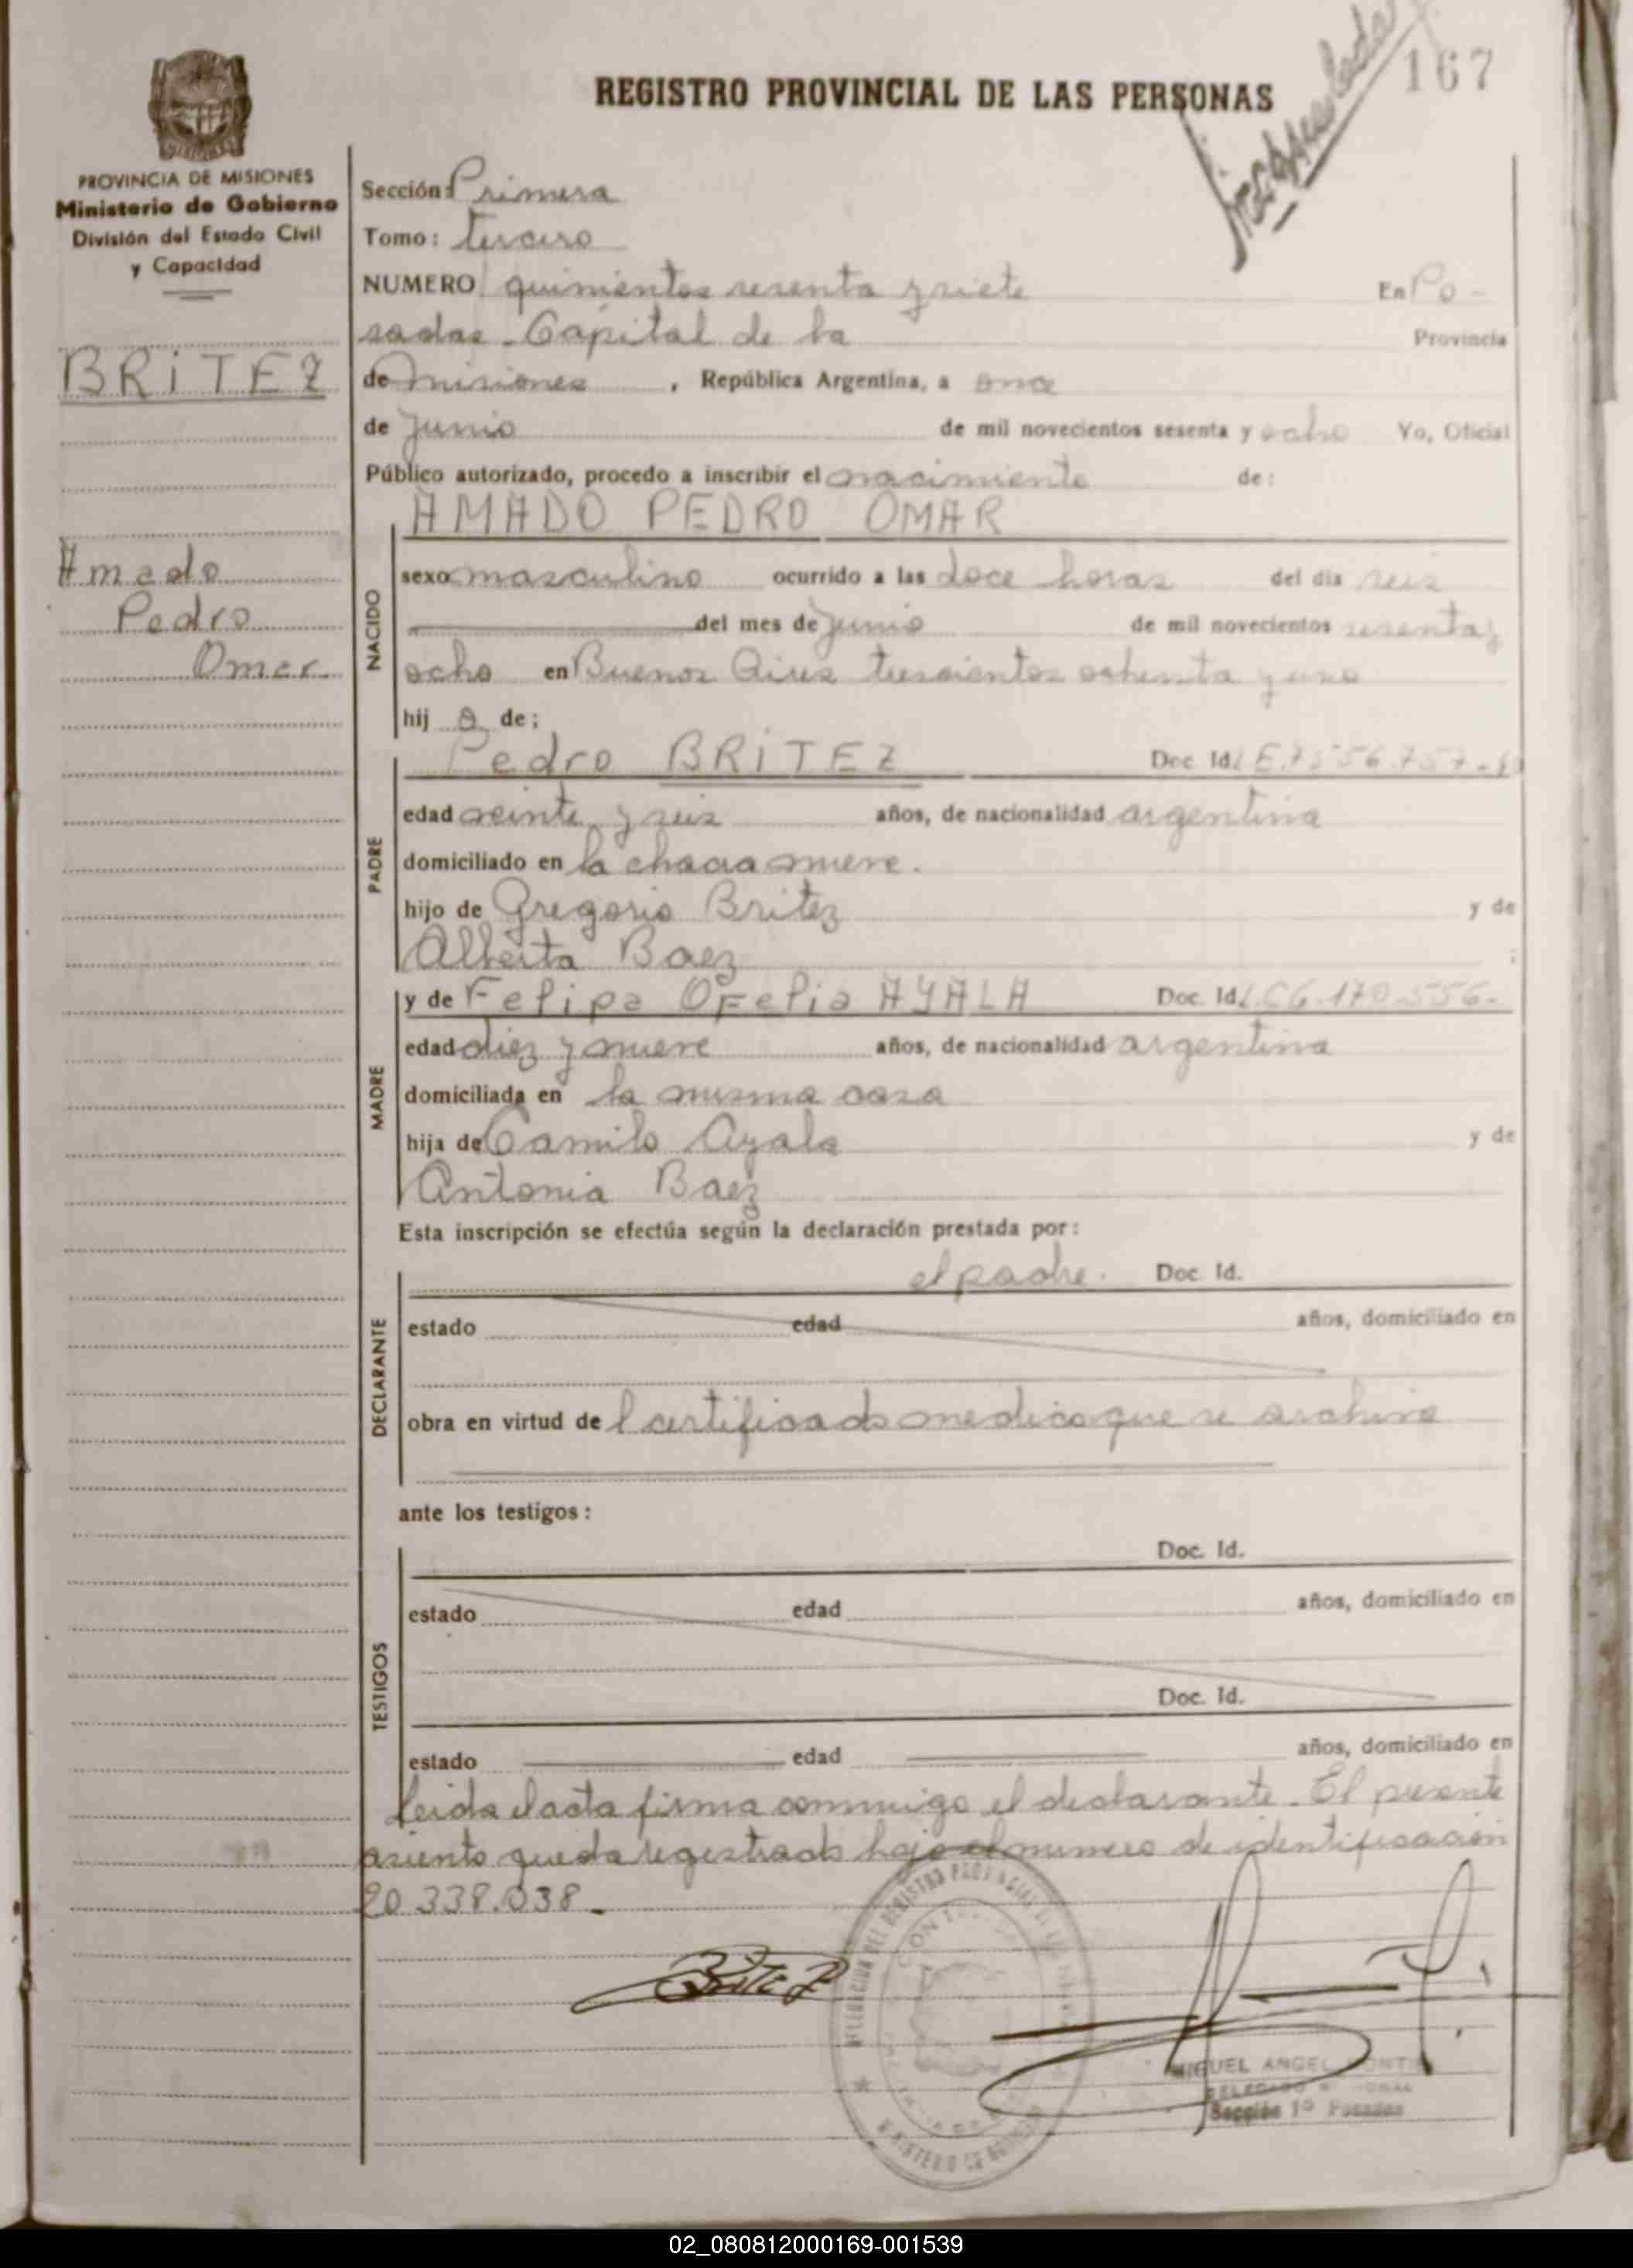 167
REGISTRO PROVINCIAL DE LAS PERSONAS
PROVINCIA DE MISIONES
Ministerio de Gobierno
División del Estado Civil
y Capacidad
BRITEZ
Amado
Pedro
Omar
Sección: Primera
Tomo: tercero
NUMERO quinientos sesenta y siete En Po-
sadas - Capital de la Provincia
de Misiones, República Argentina, a once
de Junio de mil novecientos sesenta y ocho Yo, Oficial
Público autorizado, procedo a inscribir el nacimiento de:
AMADO PEDRO OMAR
NACIDO
sexo masculino ocurrido a las doce horas del día seis
del mes de Junio de mil novecientos sesenta y
ocho en Buenos Aires trescientos ochenta y uno
hij o de;
Pedro BRITEZ Doc. Id. L.E. 7.556.757-
PADRE
edad veinte y seis años, de nacionalidad argentina
domiciliado en la chacra nueve.
hijo de Gregorio Britez y de
Alberta Baez ;
y de Felipa Ofelia AYALA Doc. Id. L.C 6.170.556-
MADRE
edad diez y nueve años, de nacionalidad argentina
domiciliada en la misma casa
hija de Camilo Ayala y de
Antonia Baez
Esta inscripción se efectúa según la declaración prestada por:
el padre. Doc. Id.
DECLARANTE
estado edad años, domiciliado en
obra en virtud de l certificado medico que se archiva
ante los testigos:
Doc. Id.
TESTIGOS
estado edad años, domiciliado en
Doc. Id.
estado edad años, domiciliado en
leida el acta firma conmigo el declarante. El presente
asiento queda registrado bajo el numero de identificación
20.338.038.-
Britez
MIGUEL ANGEL
Sección 1º Posadas
02_080812000169-001539